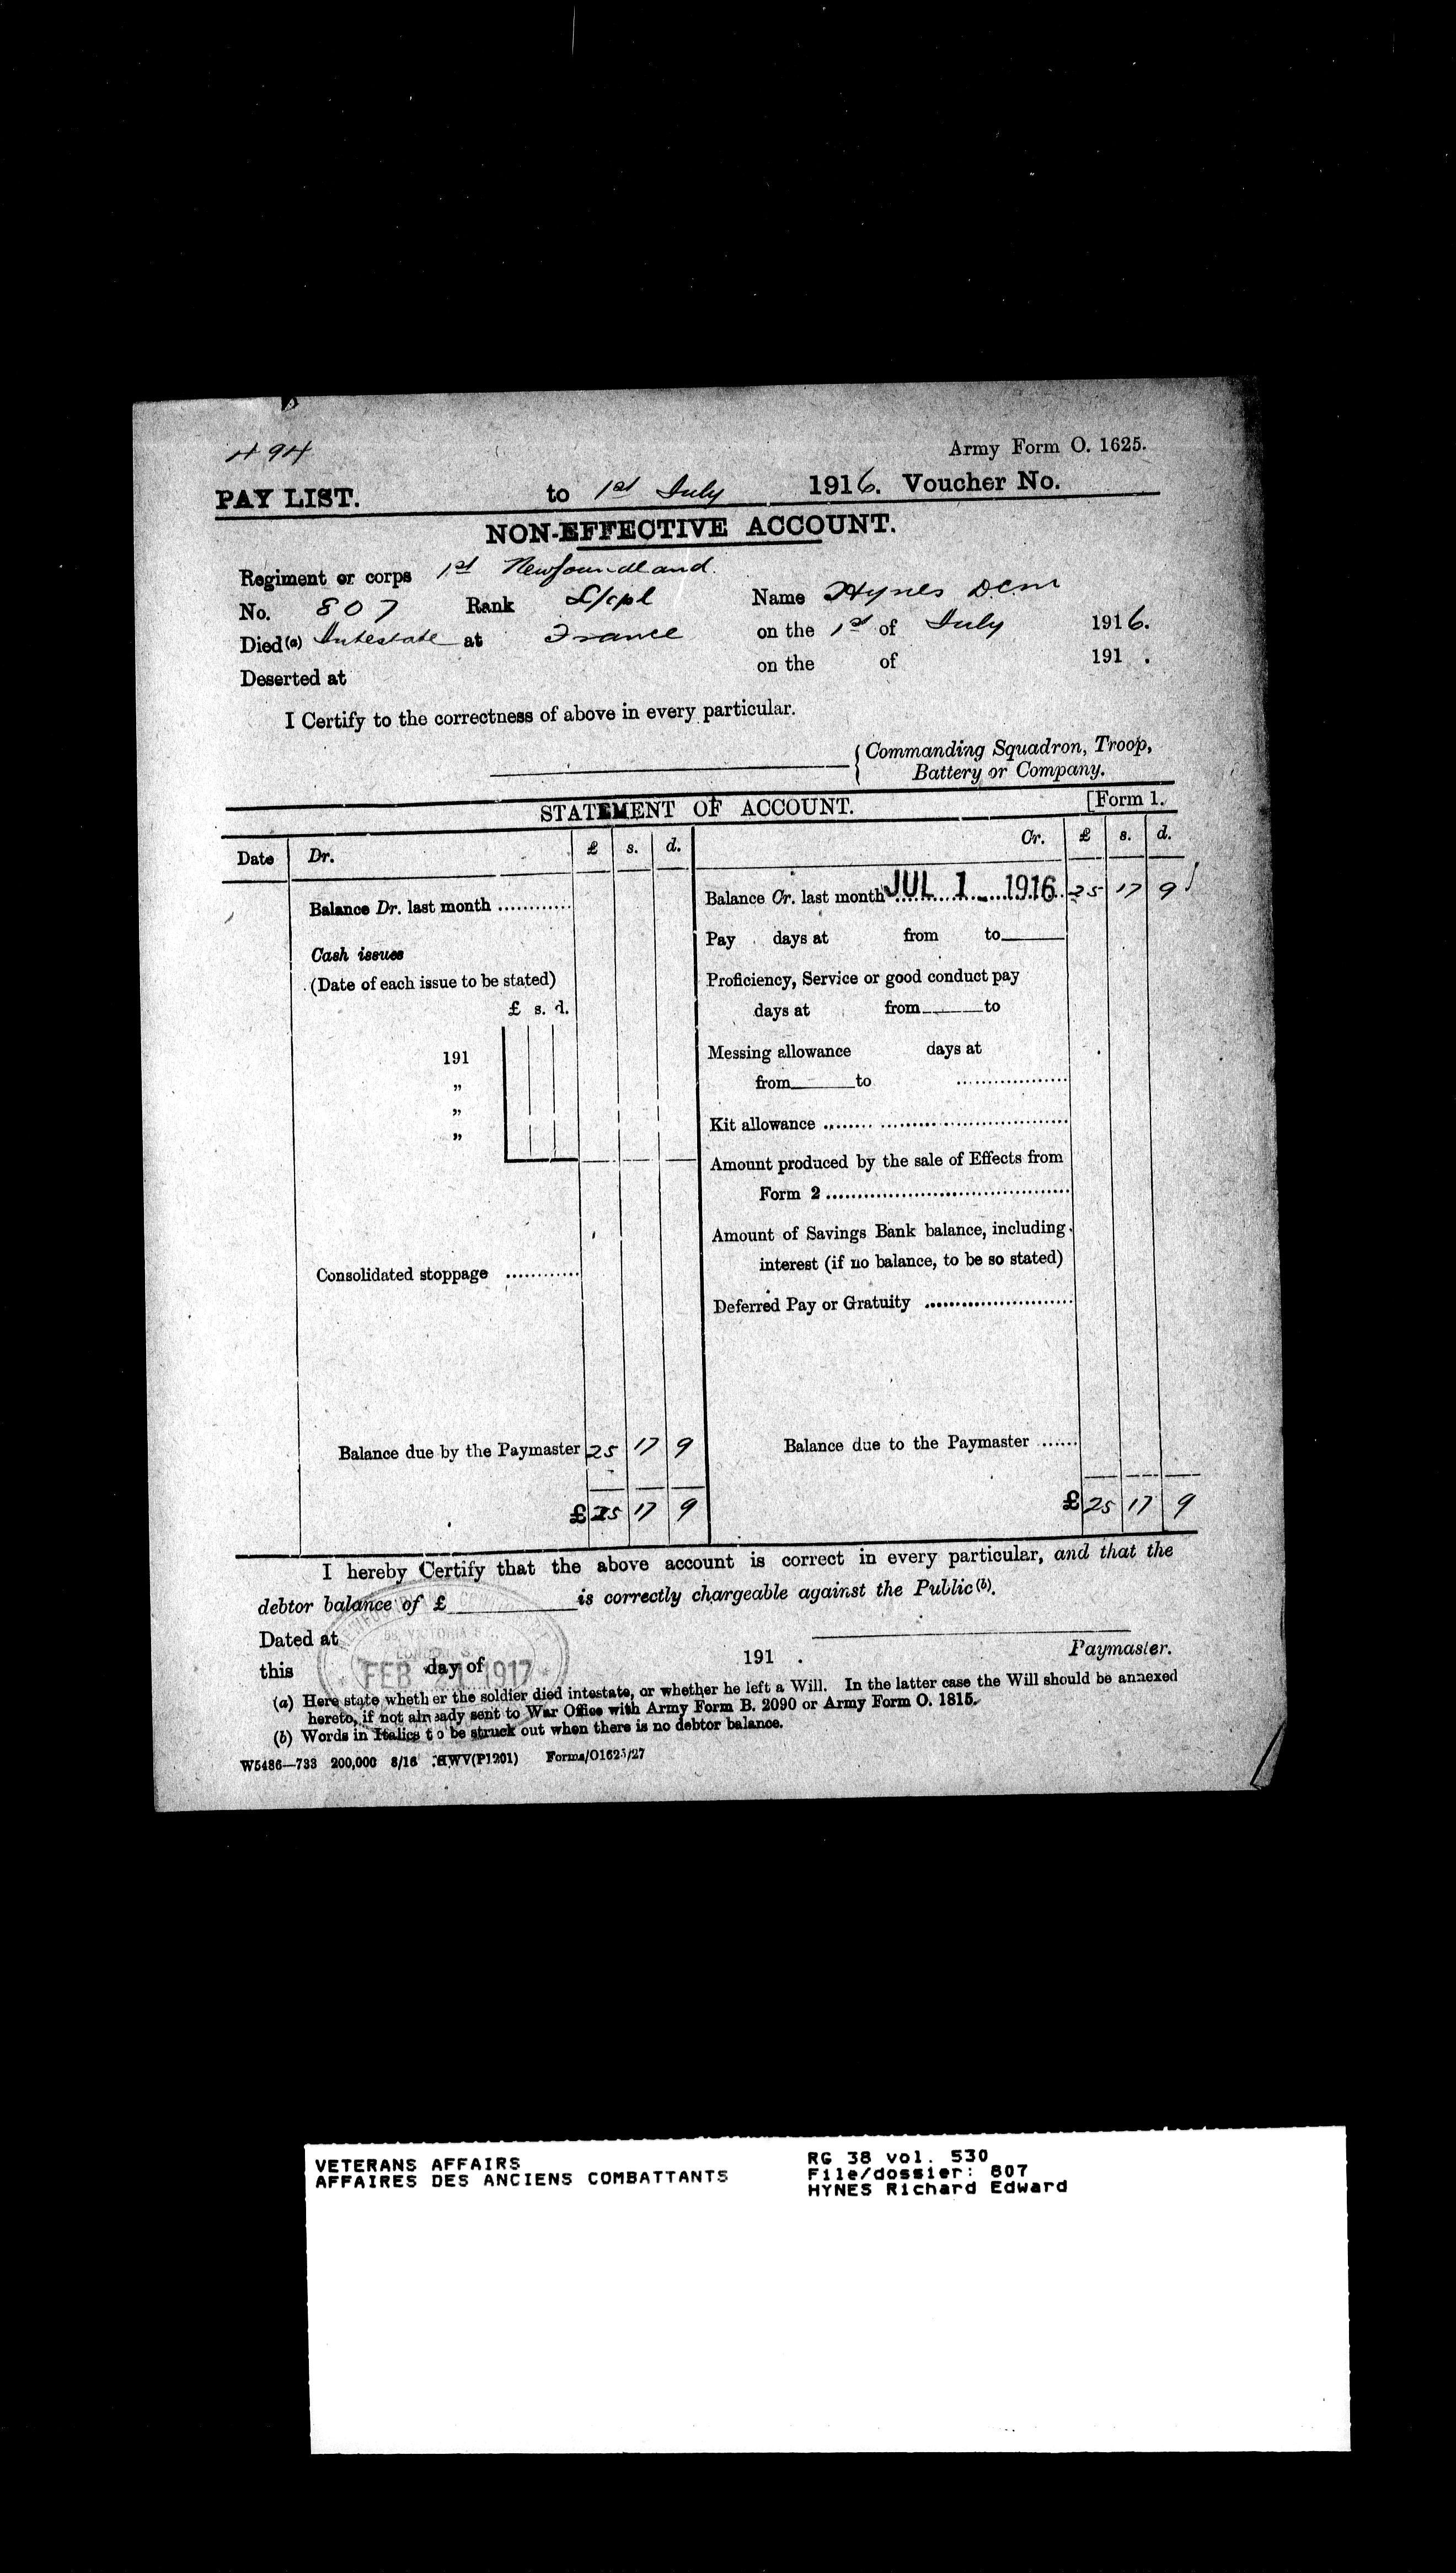 494
Army Form O. 1625.
PAY LIST. to 1st July 1916. Voucher No.
NON-EFFECTIVE ACCOUNT.
Regiment or corps 1st Newfoundland.
No. 807 Rank L/cpl Name Hynes DCM
Died (a) Intestate at France on the 1st of July 1916.
Deserted at on the of 191 .
I Certify to the correctness of above in every particular.
{ Commanding Squadron, Troop,
Battery or Company.
STATEMENT OF ACCOUNT. [Form 1.
Date Dr. £ s. d. Cr. £ s. d.
Balance Dr. last month ............ Balance Cr. last month JUL 1 1916 25 17 9
Cash issues Pay days at from to
(Date of each issue to be stated) Proficiency, Service or good conduct pay
£ s. d. days at from to
191 Messing allowance days at
„ from to
„
„ Kit allowance
Amount produced by the sale of Effects from
Form 2
Amount of Savings Bank balance, including
interest (if no balance, to be so stated)
Consolidated stoppage ............
Deferred Pay or Gratuity
Balance due by the Paymaster 25 17 9 Balance due to the Paymaster ......
£ 25 17 9 £ 25 17 9
I hereby Certify that the above account is correct in every particular, and that the
debtor balance of £ is correctly chargeable against the Public (b).
Dated at
58, VICTORIA
Paymaster.
this day of 191 .
FEB 1917
(a) Here state whether the soldier died intestate, or whether he left a Will. In the latter case the Will should be annexed
hereto, if not already sent to War Office with Army Form B. 2090 or Army Form O. 1815.
(b) Words in Italics to be struck out when there is no debtor balance.
W5486—733 200,000 8/16 HWV(P1201) Forms/O1625/27
VETERANS AFFAIRS RG 38 vol. 530
AFFAIRES DES ANCIENS COMBATTANTS File/dossier: 807
HYNES Richard Edward